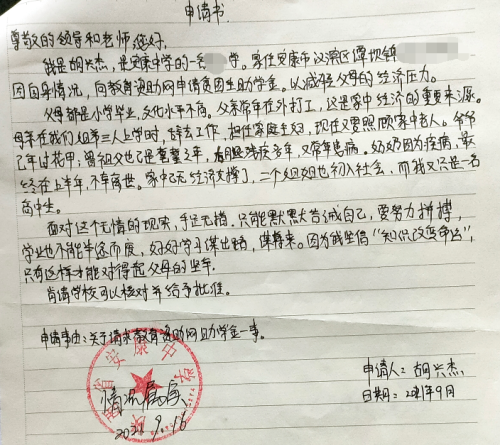 申请书
尊敬的领导和老师您好:
我是胡兴杰,是安康中学的一名 学。家住安康市汉滨区谭坝镇
因自身情况,向教育资助网申请贫困生助学金。以减轻父母的经济压力。
父母都是小学毕业,文化水平不高。父亲常年在外打工,这是家中经济的重要来源。
母亲在我们姐弟三人上学时,辞去工作,担任家庭主妇,现在又要照顾家中老人。爷爷
已年过花甲,曾祖父也已是耄耋之年,眼残疾多年,又常年患病。奶奶因为疾病,最
终在上半年,不幸离世。家中已无经济支撑了,二个姐姐也初入社会,而我又只是一名
高中生。
面对这个无情的现实,手足无措,只能默默告诫自己,要努力拼搏,
学业也不能半途而废,好好学习谋出路,谋将来。因为我坚信“知识改变命运”,
只有这样才能对得起父母的坐车。
肯请学校可以核对并给予批准。
申请事由:关于请求教育资助网助学金一事。
安康中学
情况属实
2021.9.16
申请人:胡兴杰
日期:2021年9月